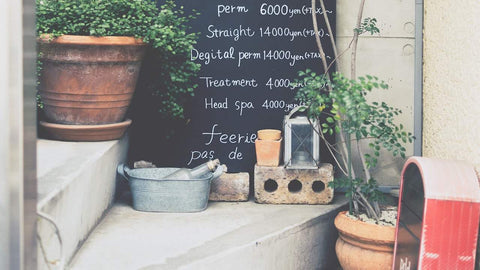 perm 6000yen(+TAX)~
Straight 14000yen(+TAX)~
Degital perm 14000yen(+TAX)~
Treatment 4000yen(+TAX)~
Head spa 4000yen
feerie
pas de